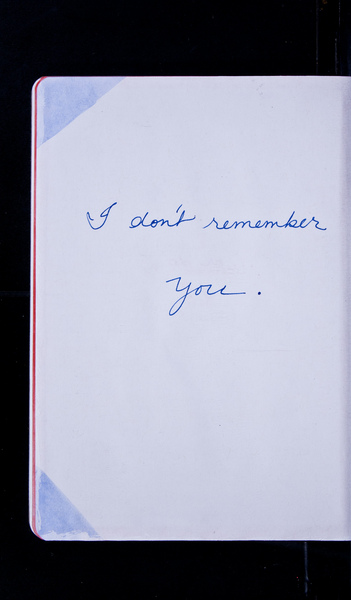 I don't remember
You.